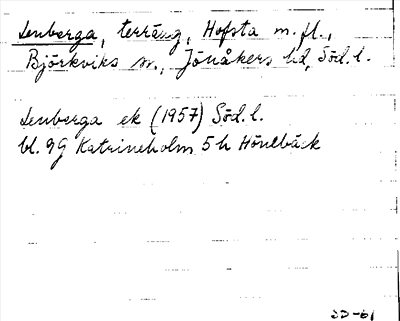 Lenberga, terräng, Hofsta m.fl.,
Björkviks sn., Jönåkers hd, Söd.l.
Lenberga ek (1957) Söd.l.
bl. 9G Katrineholm 5h Hönebäck
SD-61